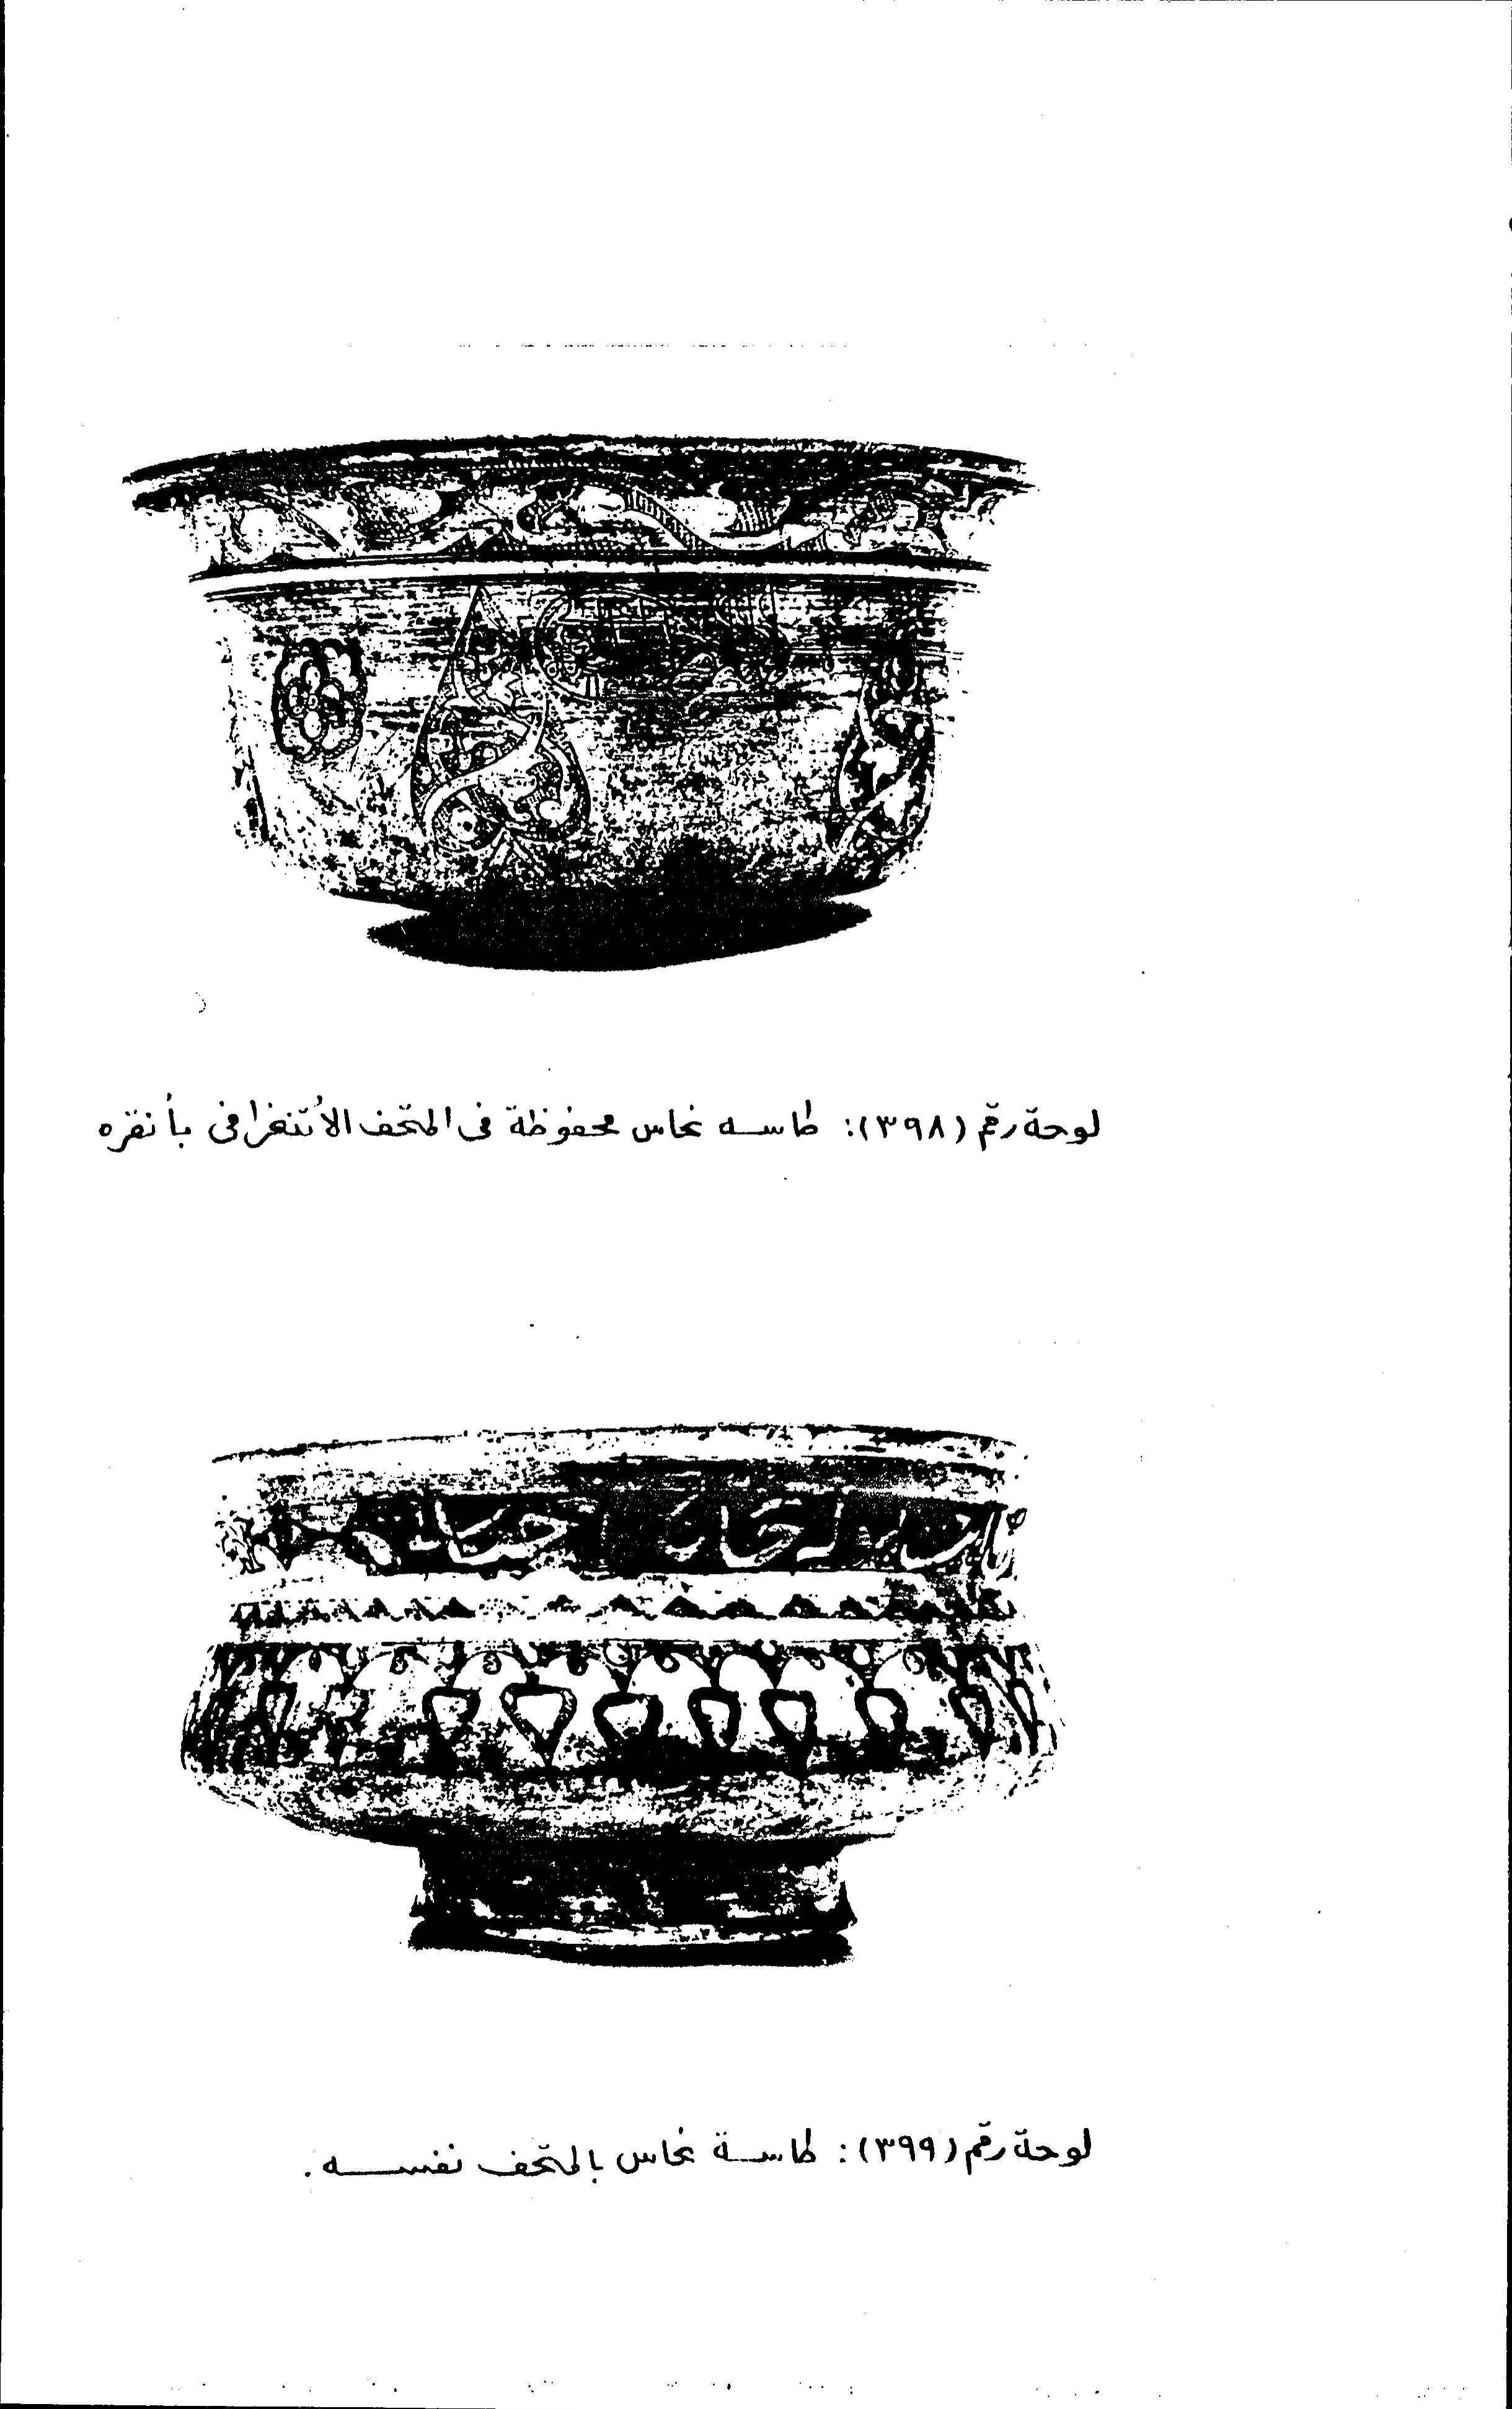 لوحة رقم (٣٩٨): طاسه نحاس محفوظة فى المتحف الأتنغرافى بأنقره
لوحة رقم (٣٩٩): طاسة نحاس بالمتحف نفسه.